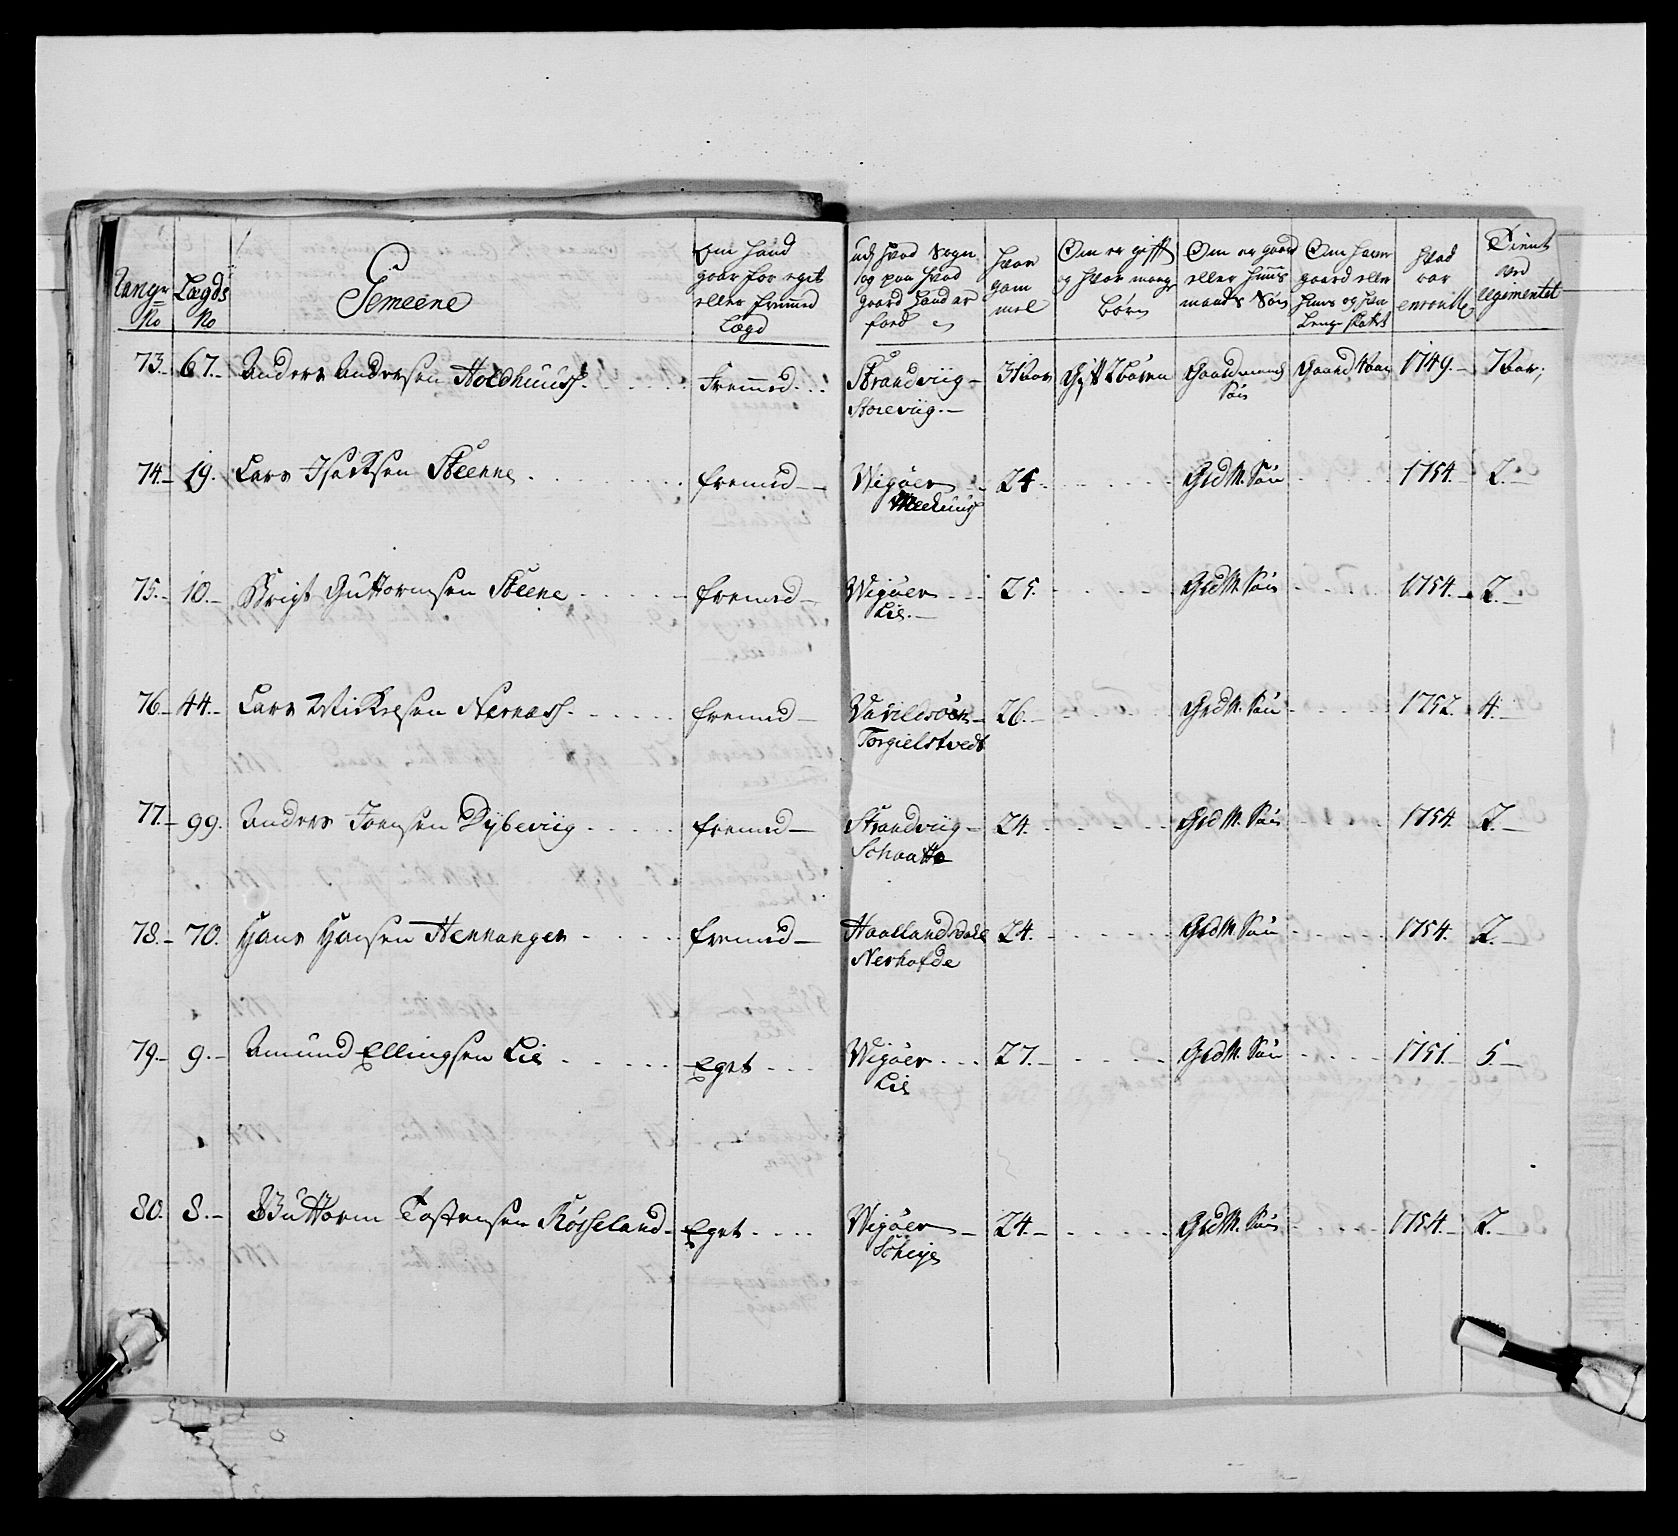 Rang No | Lægds No | Gemeene | Om hand gaar for eget eller fremed Lægd | ud hvad Sogn og paa hvad gaard hand er föed | Hvor gam mel | Om er gifft og hvor mange Börn | Om er gaard eller Huus mands Sön | Om haver gaard eller Huus og hvor Lenge | hvad aar | Tient ved Regimentet
73.- | 67.- | Anders Andersen Holdhuus | Fremed | Strandviig- Storeviig.- | 31 Aar | Gift 2 börn | Gaardmands Sön | Gaard 4 Aar | 1749.- | 7 Aar;
74.- | 19. | Lars Isacksen Steene | fremed- | Wigöer | 24. | Grdm. Sön | 1754.- | 2.-
75.- | 10.- | Brigt Guttormsen Steene | fremed- | Wigöer Lie.- | 25. | Grdm. Sön | 1754.- | 2.-
76.- | 44.- | Lars Mikkelsen Nernæs. | fremed- | Torgielstvedt | 26.- | Grdm. Sön | 1752. | 4.-
77.- | 99. | Anders Joensen Dybeviig | fremed- | Strandviig- Schaatte | 24. | Grdm. Sön | 1754. | 2.-
78.- | 70. | Hans Hansen Hennanger | fremed- | Haallandsdale Nerhofde | 24.- | Grdm. Sön | 1754. | 2.-
79.- | 9.- | Amund Ellingsen Lie | Eget | Wigöer Lie | 27.- | Grdm. Sön | 1751.- | 5.-
80. | 8.- | Guttorm Tostensen Röseland- | Eget | Wigöer- Scheje | 24.- | Grdm. Sön | 1754.- | 2.-